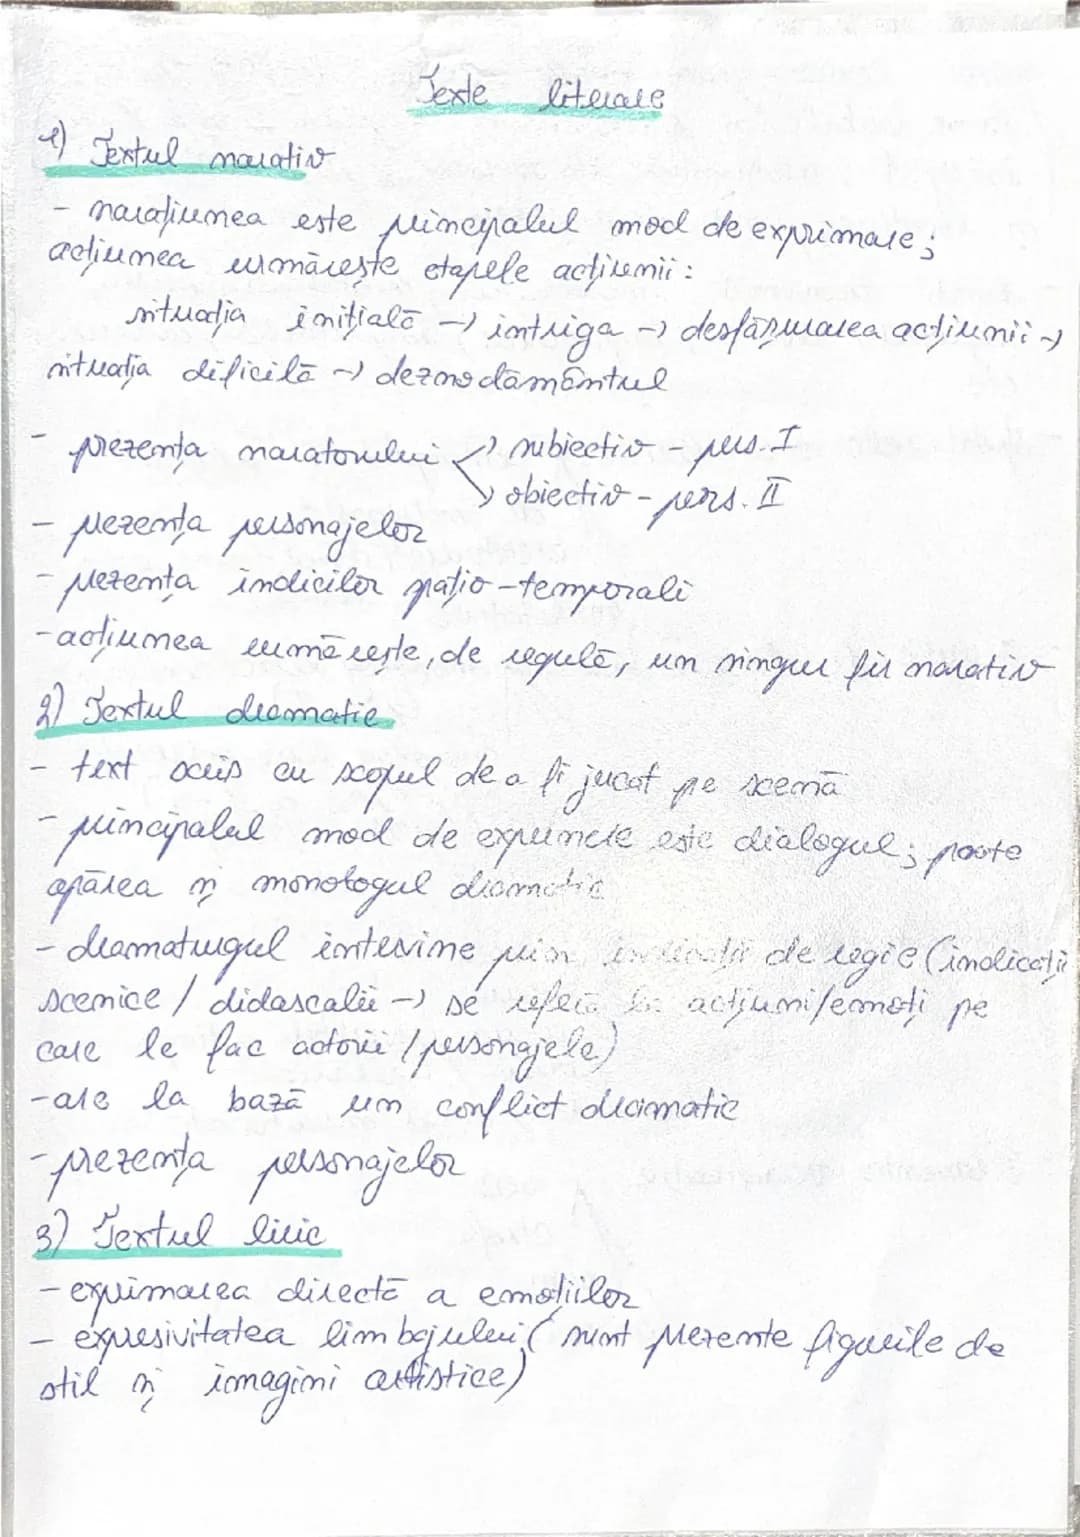 Texte literare
1) Textul narativ
- narațiunea este principalul mod de exprimare;
acțiunea urmărește etapele acțiunii:
situația inițială → intriga → desfășurarea acțiunii →
situația dificilă → deznodământul
- prezența naratorului → subiectiv - pers. I
→ obiectiv - pers. II
- prezența personajelor
- prezența indicilor spațio-temporali
- acțiunea urmărește, de regulă, un singur fir narativ
2) Textul dramatic
- text scris cu scopul de a fi jucat pe scenă
- principalul mod de exprimare este dialogul; poate
apărea și monologul dramatic
- dramaturgul intervine prin indicații de regie (indicații
scenice / didascalii → se referă la acțiuni/emoți pe
care le fac actorii / personajele)
- are la bază un conflict dramatic
- prezența personajelor
3) Textul liric
- exprimarea directă a emoțiilor
- expresivitatea limbajului (sunt prezente figurile de
stil și imagini artistice)